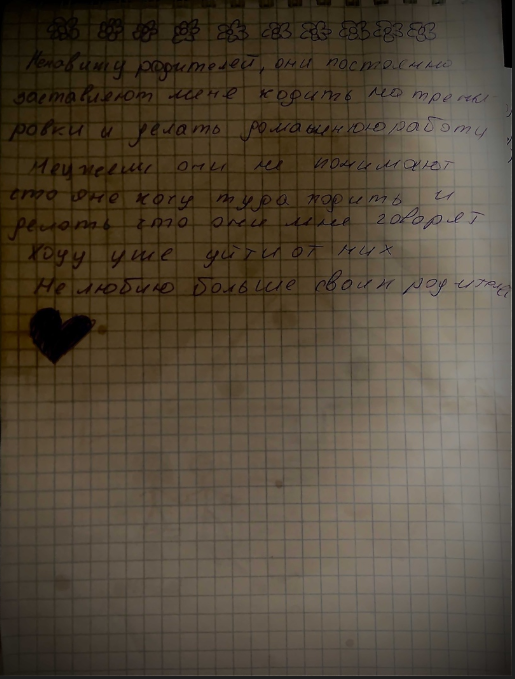 Ненавижу родителей, они постоянно
заставляют меня ходить на трени-
ровки и делать домашнюю работу
Неужели они не понимают
что я не хочу туда ходить и
делать что они мне говорят
Хочу уже уйти от них
Не люблю больше своих родителей